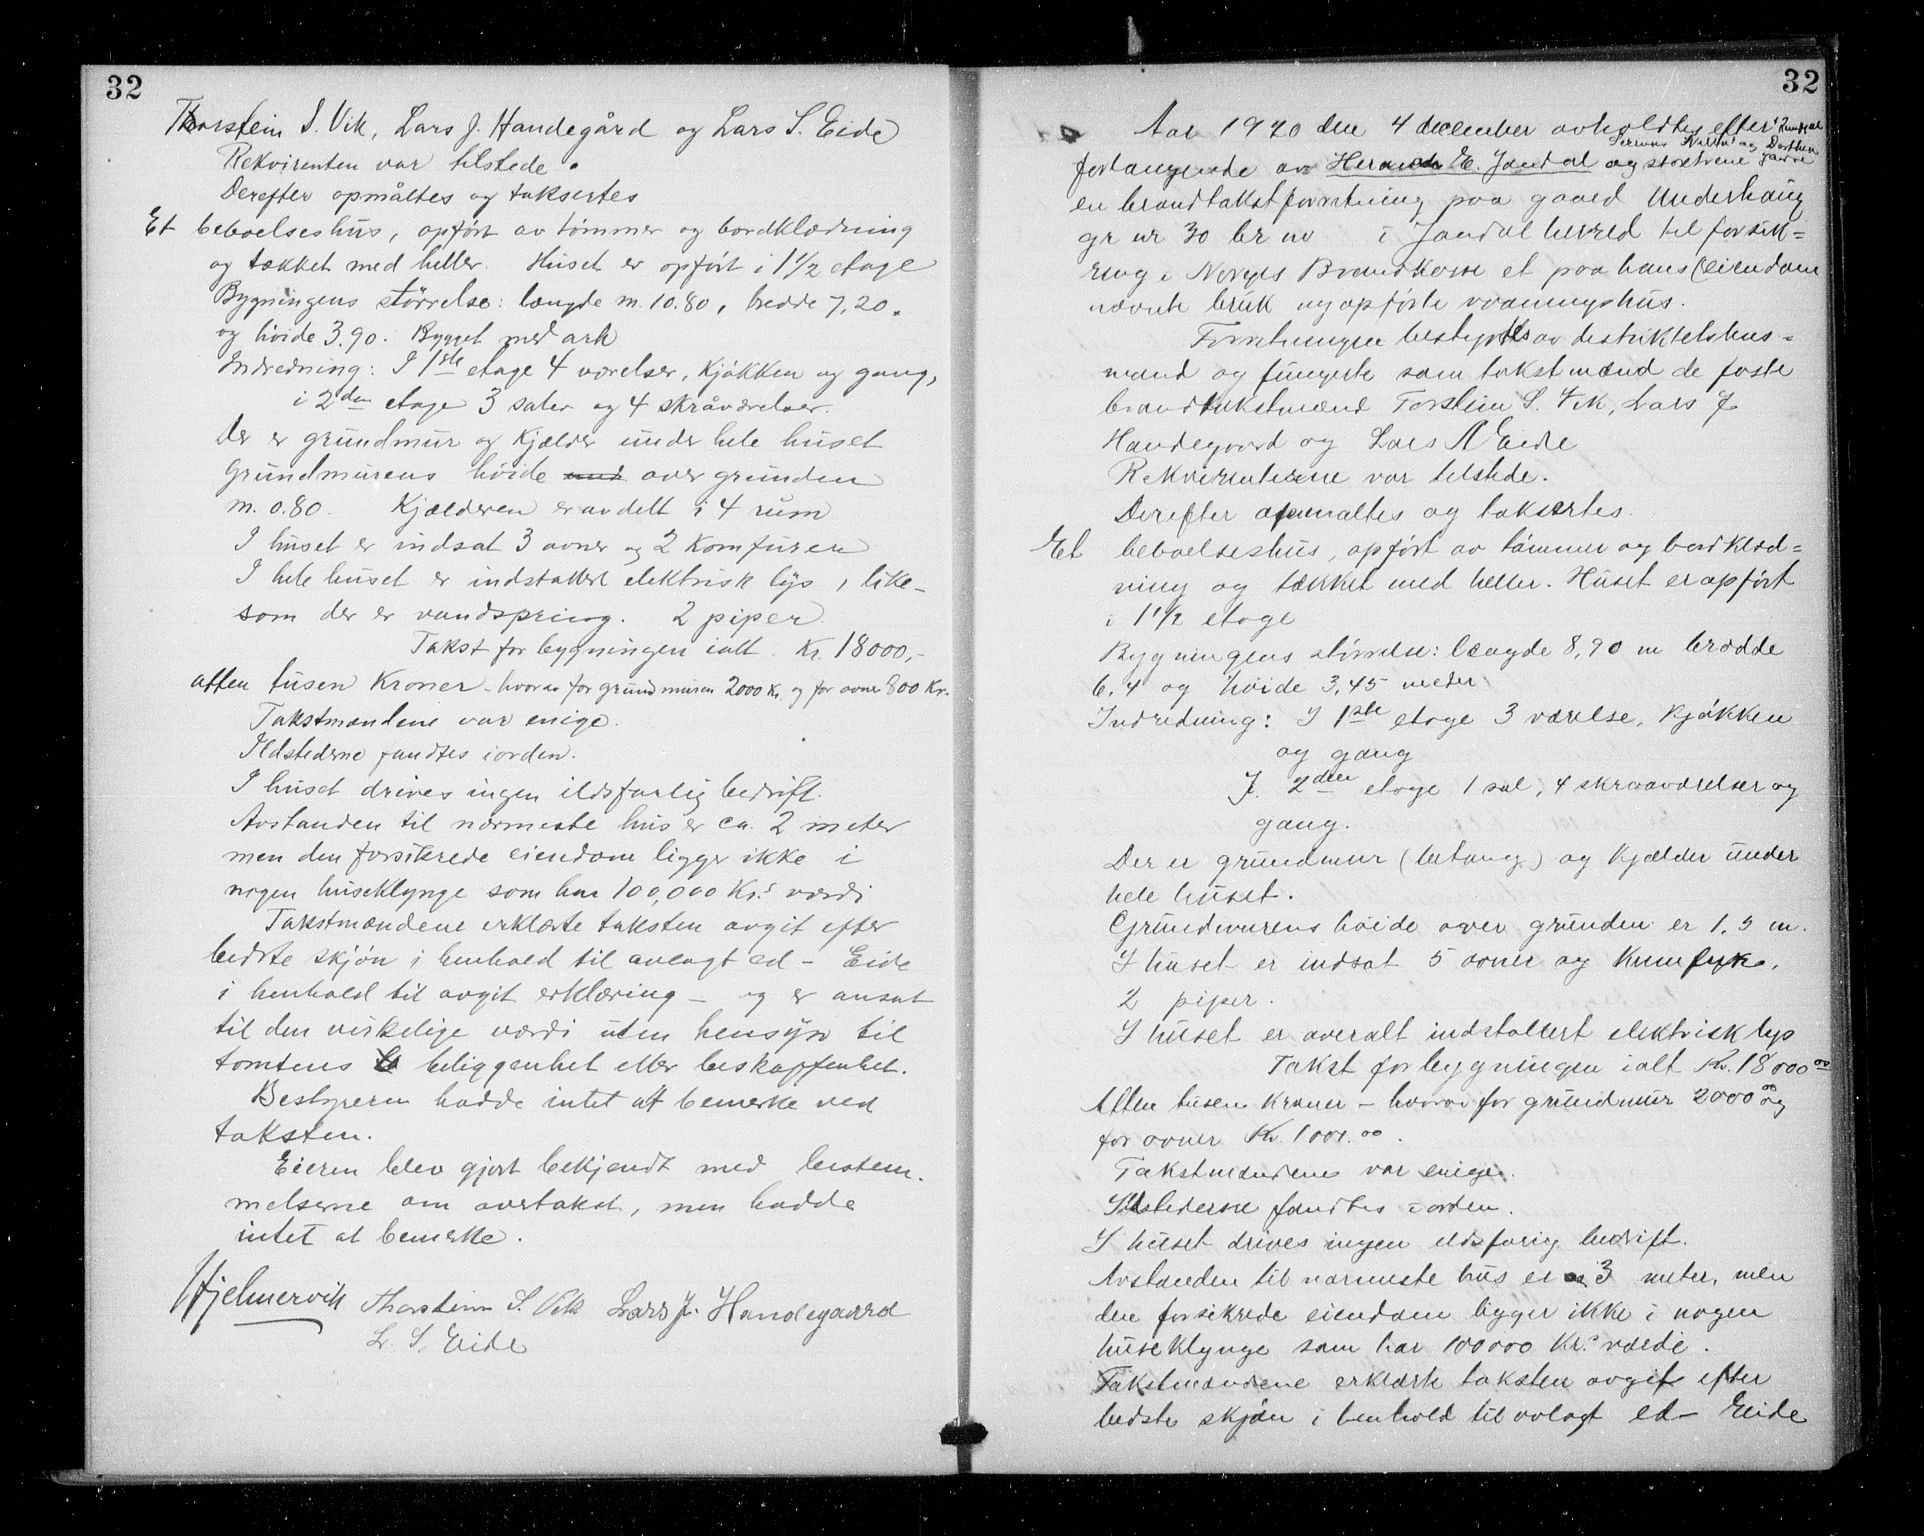 32
Thorstein S. Vik, Lars J. Handegård og Lars S. Eide
Rekvirenten var tilstede.
Derefter opmåltes og taksertes
Et beboelseshus, opført av tømmer og bordklædning
og tækket med heller. Huset er opført i 1 1/2 etage
Bygningens størrelse: længde m. 10.80, bredde 7,20.
og høide 3.90. Bygget med ark
Indredning: I 1ste etage 4 værelser, kjøkken og gang,
i 2den etage 3 saler og 4 skråværelser.
Der er grundmur og kjælder under hele huset
Grundmurens høide over grunden
m. 0.80. Kjælderen er avdelt i 4 rum
I huset er indsat 3 ovner og 2 komfurer
I hele huset er indstallert elektrisk lys, like-
som der er vandspring. 2 piper
Takst for bygningen ialt. Kr. 18000,-
atten tusen kroner - hvorav for grundmuren 2000 Kr. og for ovner 800 Kr.
Takstmændene var enige.
Ildstederne fandtes iorden.
I huset drives ingen ildsfarlig bedrift.
Avstanden til nærmeste hus er ca. 2 meter
men den forsikrede eiendom ligger ikke i
nogen huseklynge som har 100,000 Kr.s værdi
Takstmændene erklærte taksten avgit efter
bedste skjøn i henhold til avlagt ed - Eide
i henhold til avgit erklæring - og er ansat
til den virkelige værdi uten hensyn til
tomtens beliggenhet eller beskaffenhet.
Bestyreren hadde intet at bemerke ved
taksten.
Eieren blev gjort bekjendt med bestem-
melserne om overtakst, men hadde
intet at bemerke.
Hjelmervik Thorstein S. Vik Lars J. Handegaard
L. S. Eide
32
Aar 1920 den 4 december avholdtes efter
forlangende av E. Jondal og søstrene
og Dorthea
en brandtakstforretning paa gaard Underhaug
gr nr 30 br nr i Jondal herred til forsik=
ring i Norges Brandkasse et paa hans (eiendom
nævnte bruk nyopførte vaaningshus.
Forretningen bestyrtes av distriktslhns=
mand og fungerte som takstmænd de faste
brandtakstmænd Torstein S. Vik, Lars J
Handegaard og Lars S Eide
Rekvirenterne var tilstede.
Derefter opmaltes og taksertes.
Et beboelseshus, opført av tømmer og bordklæd=
ning og tækket med heller. Huset er opført
i 1 1/2 etage
Bygningens størrelse: længde 8,90 m bredde
6,4 og høide 3,45 meter
Indredning: I 1ste etage 3 værelse, kjøkken
og gang
I 2den etage 1 sal, 4 skraaværelser og
gang.
Der er grundmur (betong) og kjælder under
hele huset.
Grundmurens høide over grunden er 1.5 m.
I huset er indsat 5 ovner og
2 piper.
I huset er overalt indstallert elektrisk lys
Takst for bygningen ialt Kr. 18000 00
Atten tusen kroner - hvorav for grundmur 2000 00 og
for ovner Kr. 1000.00.
Takstmændene var enige.
Ildstederne fandtes iorden.
I huset drives ingen ildsfarig bedrift.
Avstanden til nærmeste hus er 3 meter, men
den forsikrede eiendom ligger ikke i nogen
huseklynge som har 100000 Kr.s værdi.
Takstmændene erklærte taksten avgit efter
bedste skjøn i henhold til avlagt ed - Eide